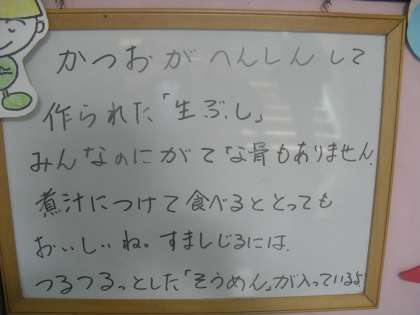 かつおがへんしんして
作られた「生ぶし」
みんなのにがてな骨もありません。
煮汁につけて食べるととっても
おいしいね。すましじるには、
つるつるっとした「そうめん」が入っているよ